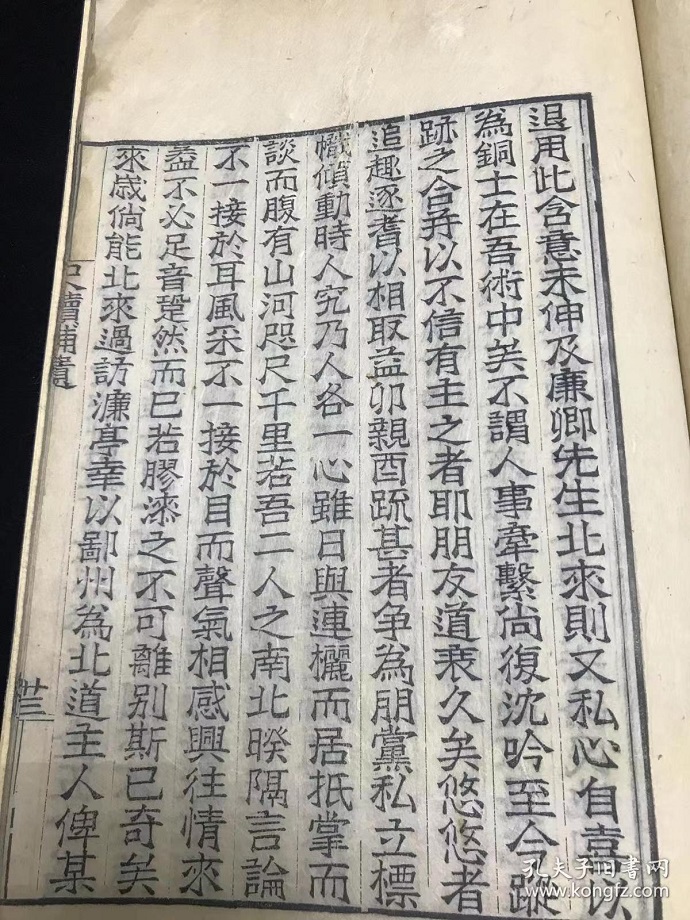 退用此含意未伸及廉卿先生北來則又私心自喜以
為銅士在吾術中矣不謂人事牽繫尚復沈吟至今蹤
跡之合并以不信有主之者耶朋友道衰久矣悠悠者
追趣逐耆以相取益卯親酉疏甚者争為朋黨私立標
幟傾動時人究乃人各一心雖日與連欐而居抵掌而
談而腹有山河咫尺千里若吾二人之南北暌隔言論
不一接於耳風采不一接於目而聲氣相感興往情來
蓋不必足音跫然而已若膠漆之不可離别斯已奇矣
來歲倘能北來過訪濂亭幸以鄙州為北道主人俾某
尺牘補遺
卅三
孔夫子旧书网
www.kongfz.com